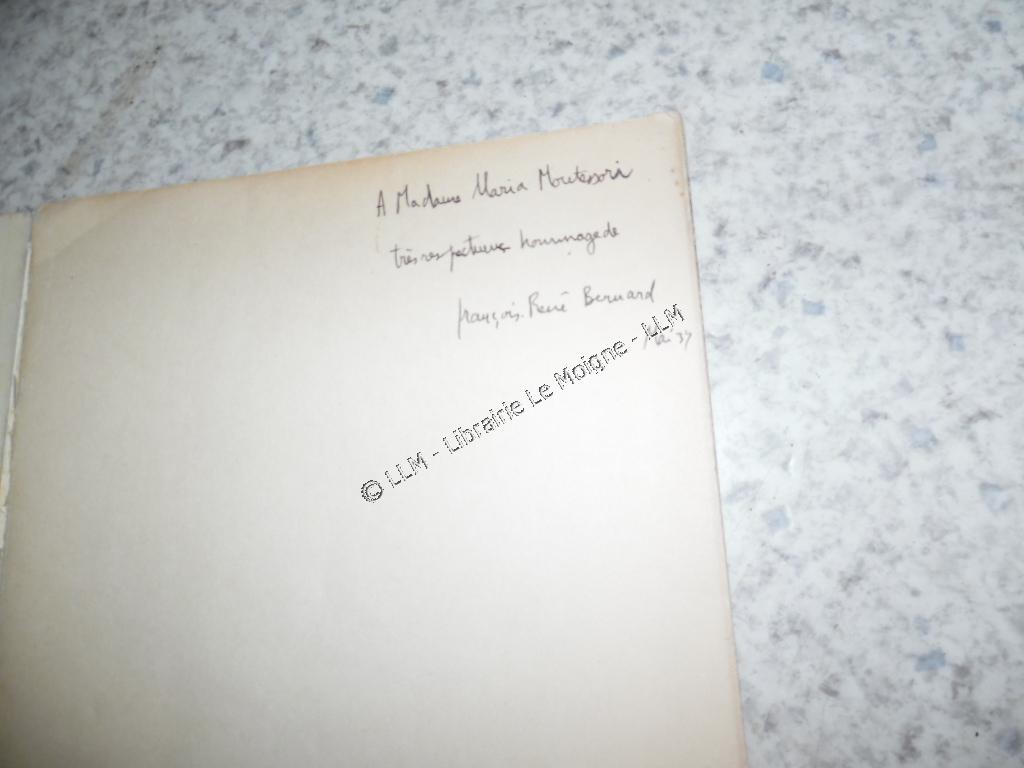 A Madame Maria Montessori
très respectueux hommage de
François-René Bernard
Mai 37
© LLM - Librairie Le Moigne - LLM